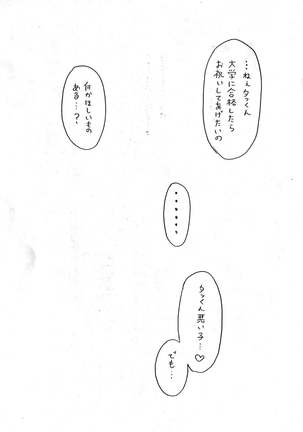 …ねぇタっくん
大学に合格したら
お祝いしてあげたいの
何かほしいもの
ある…?
・・・・・・
タっくん悪い子…♡
でも…